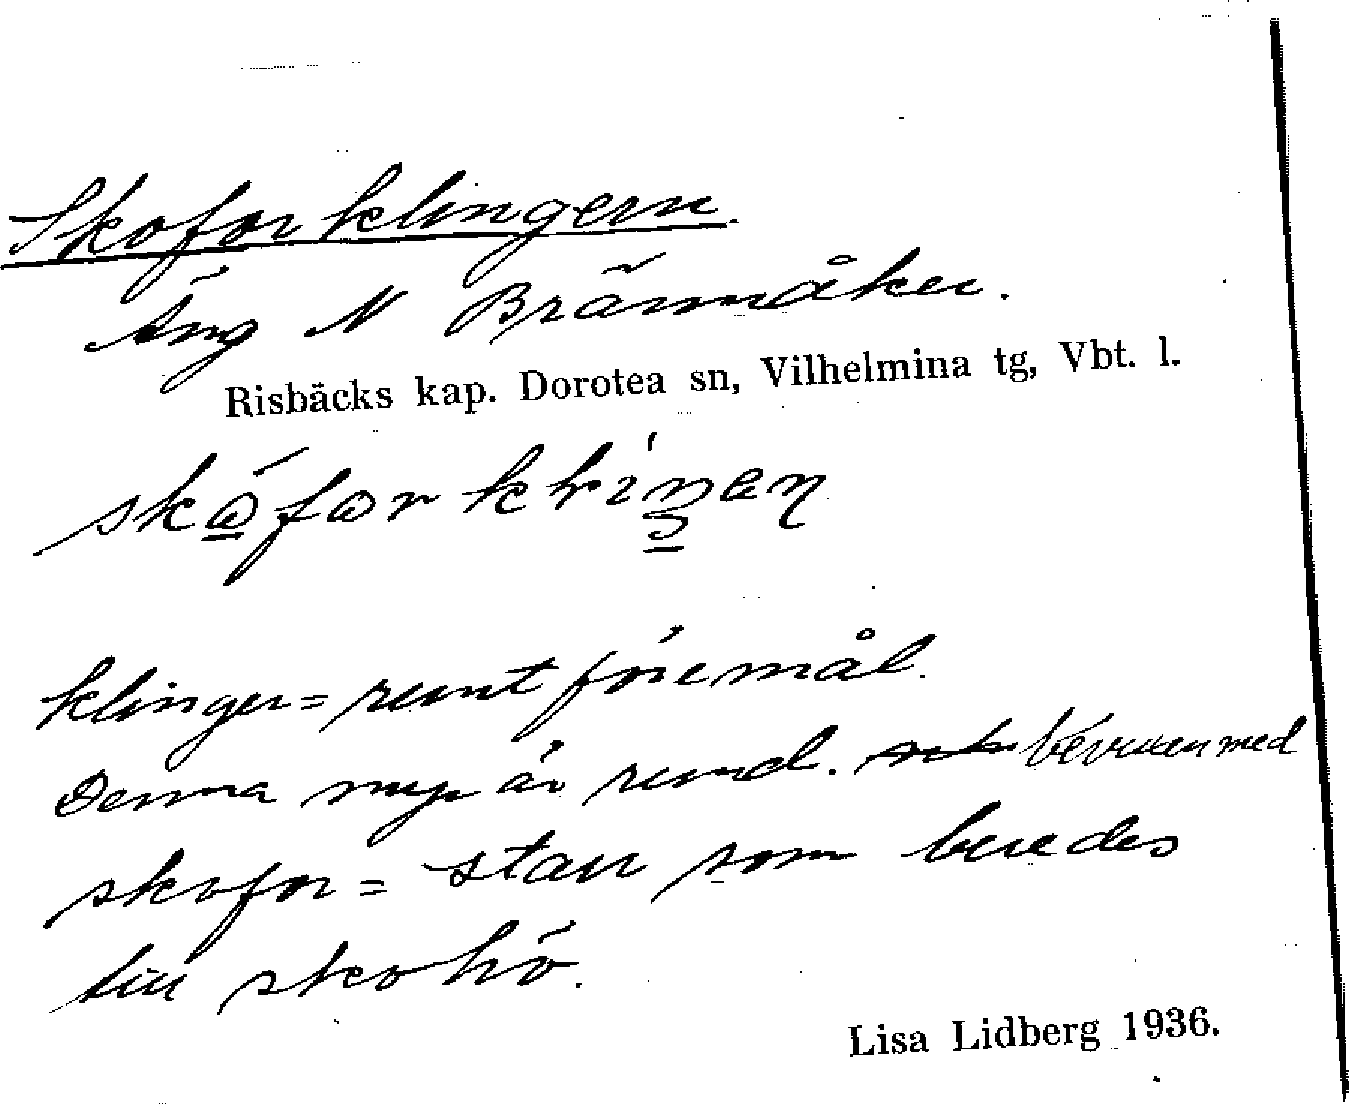 Skoforklingern.
Äng N Brännåker.
Risbäcks kap. Dorotea sn, Vilhelmina tg, Vbt. l.
klinger = runt föremål.
Denna myr är rund. bevuxen med
skofor = starr som beredes
till skohö.
Lisa Lidberg 1936.